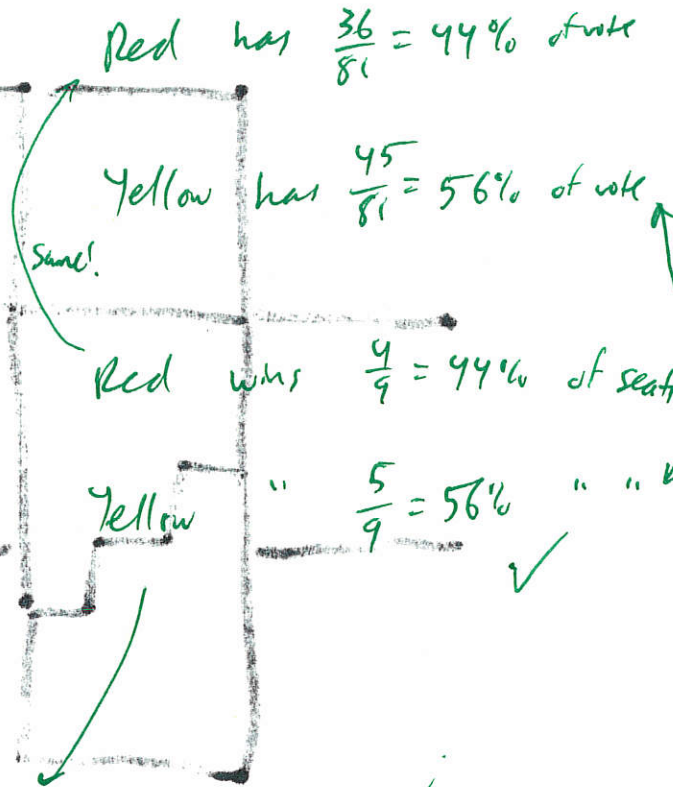 Red has 36/81 = 44% of vote
Yellow has 45/81 = 56% of vote
Same!
Red wins 4/9 = 44% of seats
Yellow " 5/9 = 56% " "